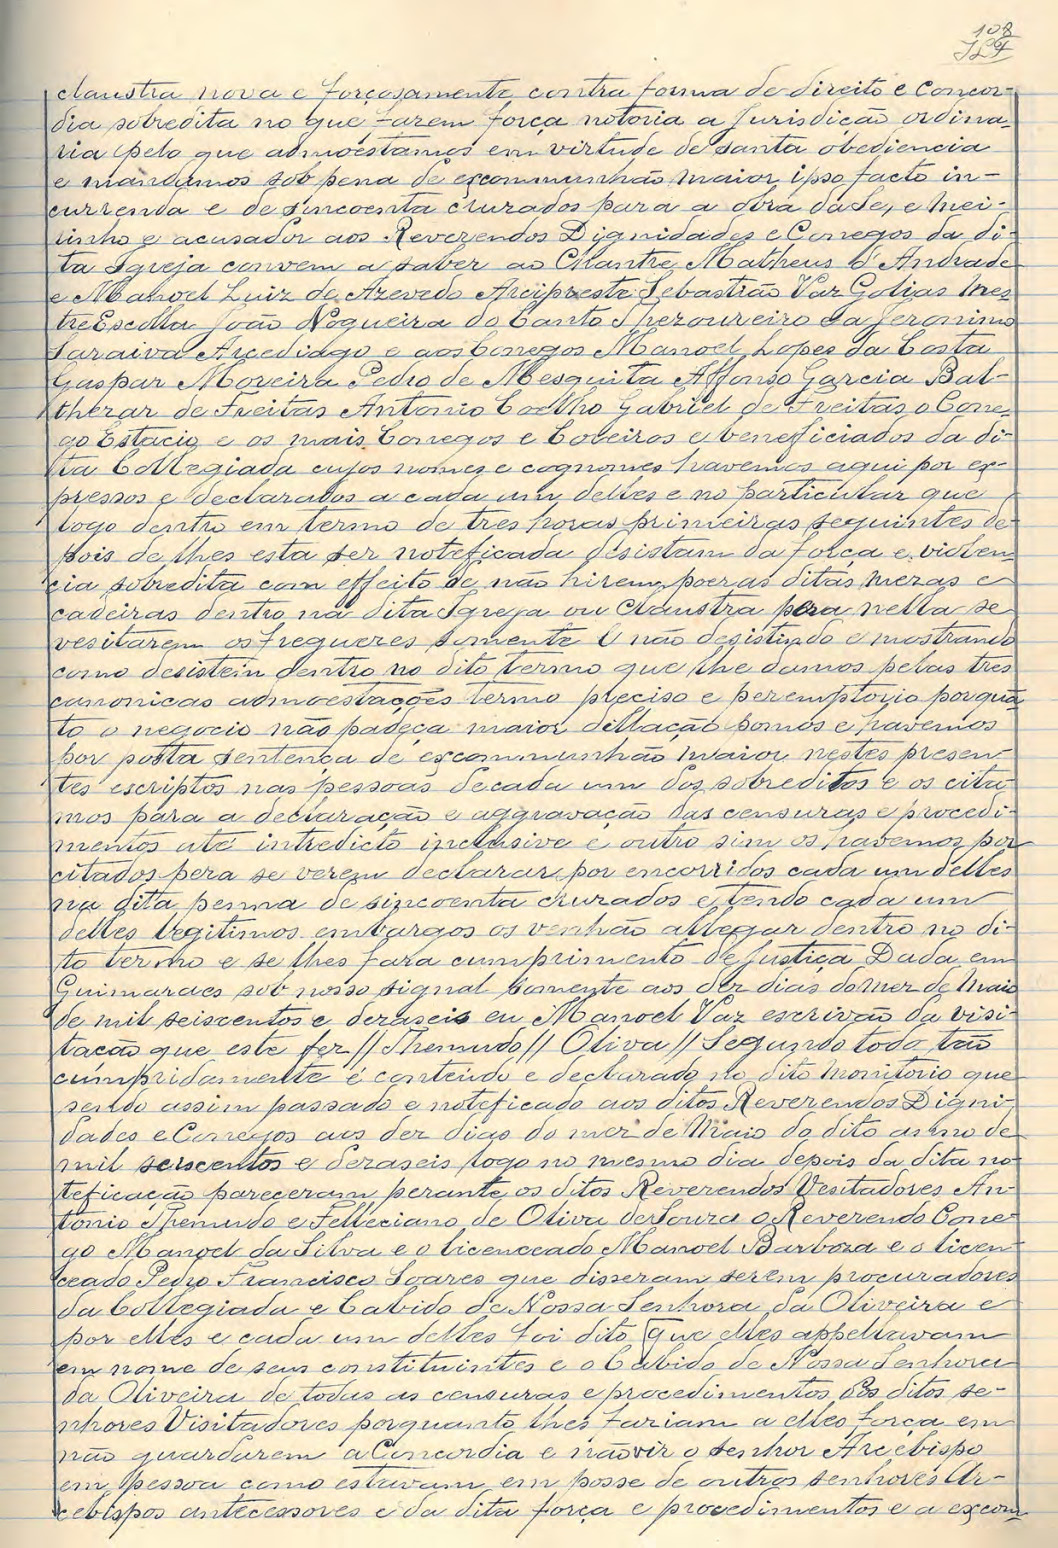 108
claustra nova e forçosamente contra forma de direito e Concor-
dia sobredita no que farem força notoria a Jurisdição ordina-
ria pelo que admoestamos em virtude de santa obediencia
e mandamos sob pena de excommunhão maior ipso facto in-
currenda e de sincoenta cruzados para a obra da Se, e Mei-
rinho e acusador aos Reverendos Dignidades e Conegos da di-
ta Igreja convem a saber ao Chantre Matheus d'Andrade
e Manoel Luiz de Azevedo Arcipreste Sebastrão Vaz Golias Mes
tre Escolla João Nogueira do Canto Thezoureiro da Jeronimo
Saraiva Arcediago e aos Conegos Manoel Lopes da Costa
Gaspar Moreira Pedro de Mesquita Affonso Garcia Bal-
thezar de Freitas Antonio Coelho Gabriel de Freitas o Cone-
go Estacio e os mais Conegos e Coreiros e beneficiados da di-
ta Collegiada cujos nomes e cognomes havemos aqui por ex-
pressos e declarados a cada um delles e no particular que
logo dentro em termo de tres horas primeiras seguintes de-
pois de lhes esta ser noteficada desistam da força e violen-
cia sobredita com effeito de não hirem poer as ditas mezas e
cadeiras dentro na dita Igreja ou Claustra pera nella se
vesitarem os freguezes somente E não desistindo e mostrando
como desistein dentro no dito termo que lhe damos pelas tres
canonicas admoestações termo preciso e peremptorio porquã
to o negocio não padeça maior dillação pomos e havemos
por posta sentença de excommunhão maior nestes presen-
tes escriptos nas pessoas decada um dos sobreditos e os cita-
mos para a declaração e aggravação das censuras e procedi-
mentos até intredicto inclusive e outro sim os havemos por
citados pera se verem declarar por encorridos cada um delles
na dita penna de sincoenta cruzados e tendo cada um
delles legitimos embargos os venhão allegar dentro no di-
to termo e se lhes fara cumprimento de Justiça Dada em
Guimaraes sob nosso signal somente aos dez dias do mez de Maio
de mil seiscentos e dezaseis eu Manoel Vaz escrivão da visi-
tação que este fez // Themudo // Oliva // Segundo todo tão
cumpridamente é conteudo e declarado no dito Monitorio que
sendo assim passado e noteficado aos ditos Reverendos Digni-
dades e Conegos aos dez dias do mez de Maio do dito anno de
mil seiscentos e dezaseis logo no mesmo dia depois da dita no-
teficação pareceram perante os ditos Reverendos Vesitadores An-
tonio Themudo e Felleciano de Oliva de Souza o Reverendo Cone-
go Manoel da Silva e o licenceado Manoel Barboza e o licen-
ceado Pedro Francisco Soares que disseram serem procuradores
da Collegiada e Cabido de Nossa Senhora da Oliveira e
por elles e cada um delles foi dito que elles appellavam
em nome de seus constituintes e o Cabido de Nossa Senhora
da Oliveira de todas as censuras e procedimentos dos ditos se-
nhores Visitadores porquanto lhes faziam a elles força em
não guardarem a Concordia e não vir o senhor Arcebispo
em pessoa como estavam em posse de outros senhores Ar-
cebispos antecessores e da dita força e procedimentos e a excom